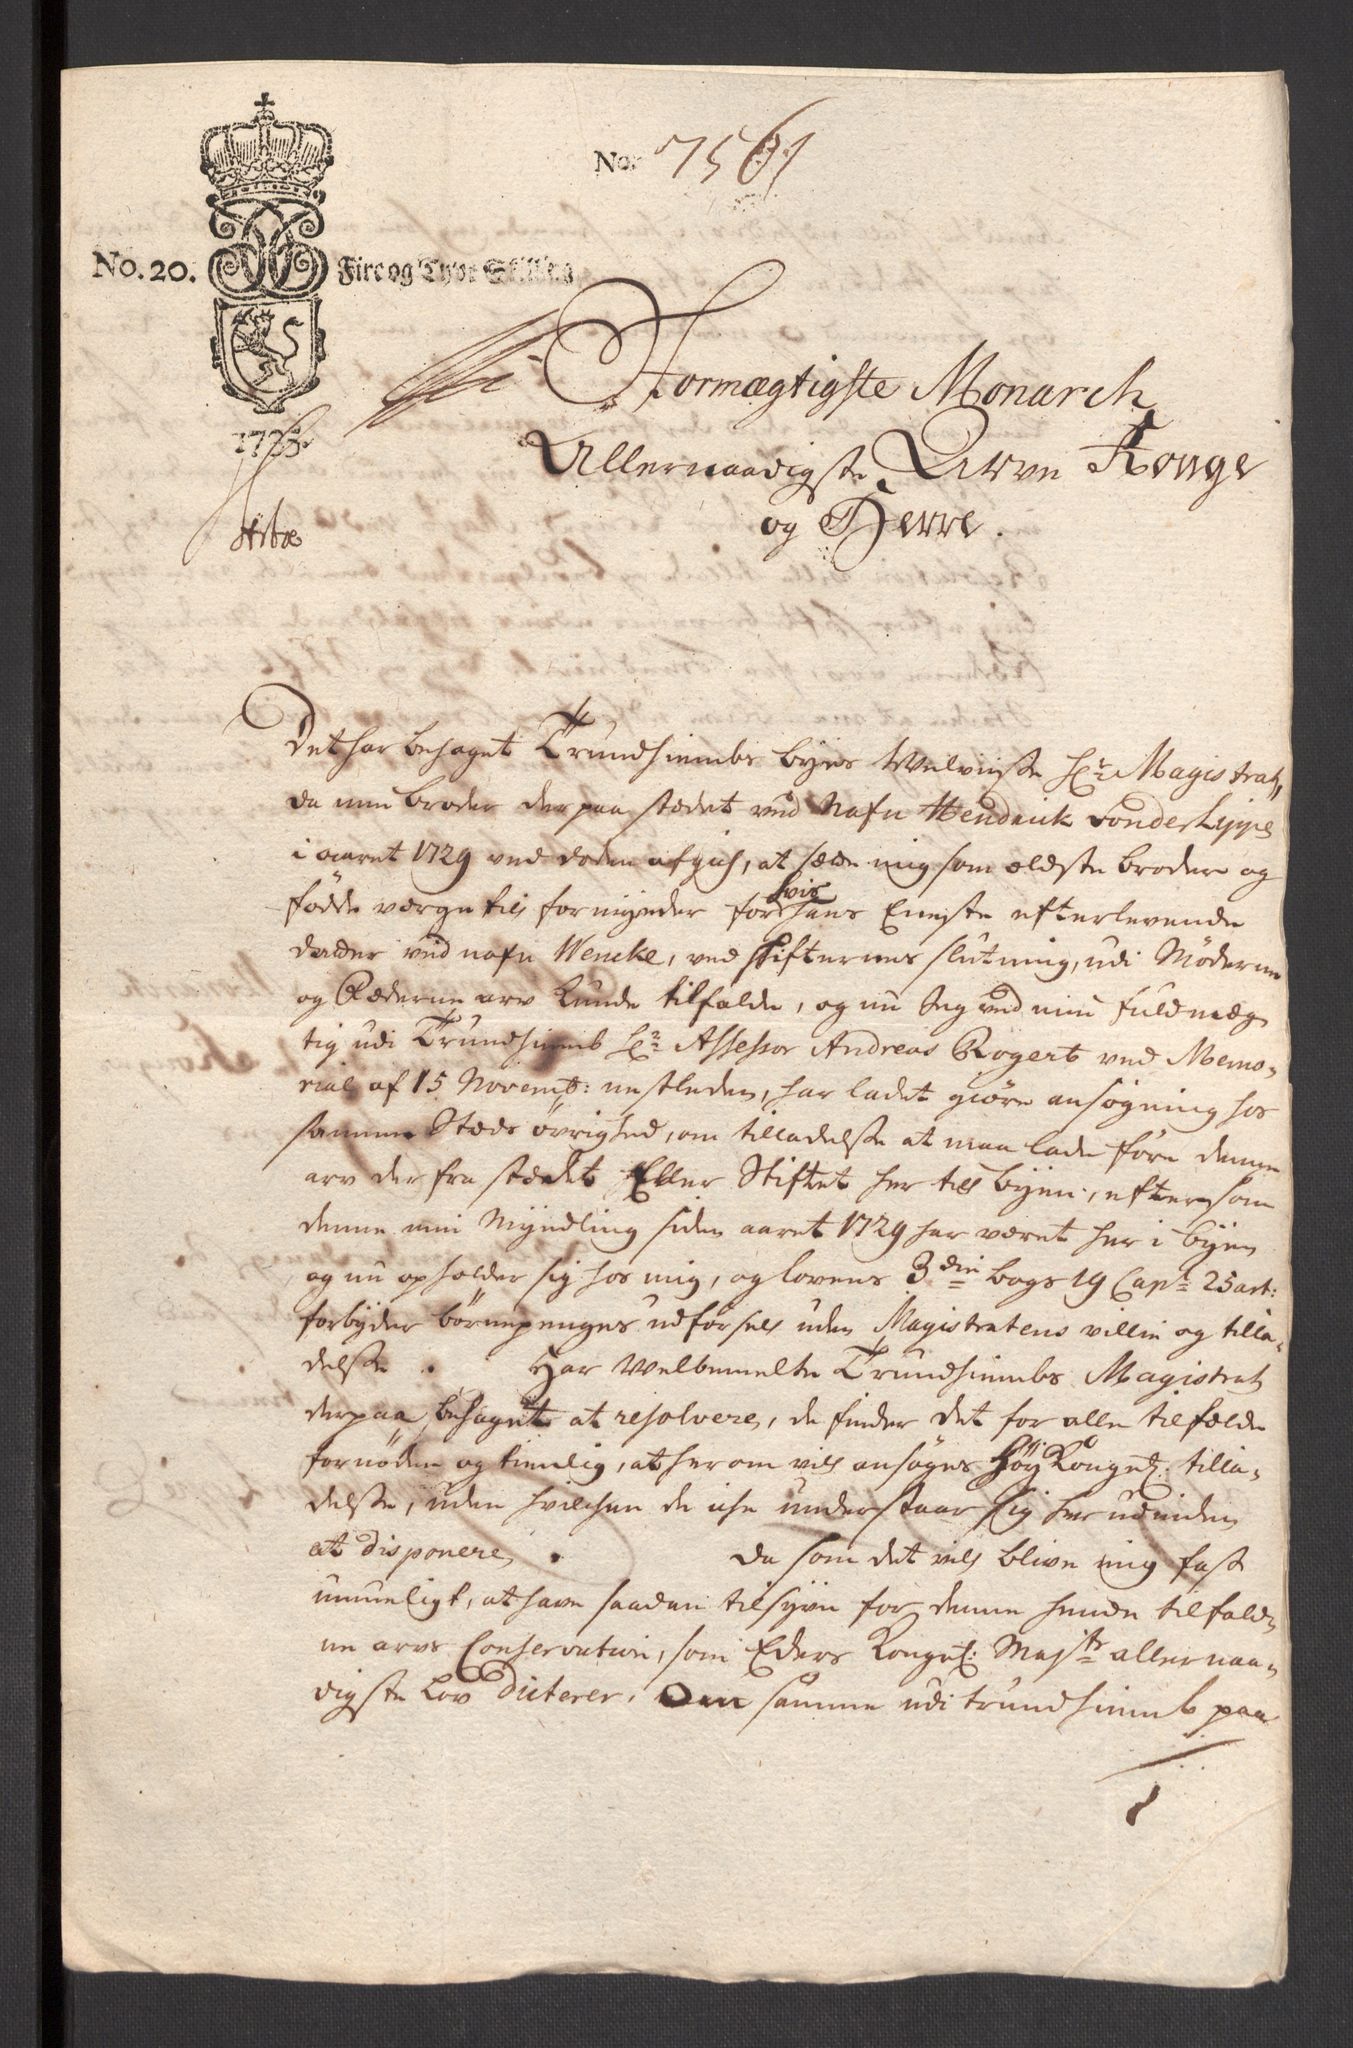 No. 7561
No. 20. Fire og Tyve Skilling
1733.
Stormægtigste Monarch
Allernaadigste Arve Konge
og Herre.
Det har behaget Trundhiembs byes Velviiste Hr: Magistrat,
da min broder der paa stædet ved Nafn Hendrick Fonderlippe
i aaret 1729 ved døden afgich, at sætte mig som ældste broder og
fødde værge till formynder for hvis hans Eneste efterlevende
datter ved nafn Wencke, ved skifternes slutning, udi Møderne
og Fæderne arv kunde tilfalde, og nu Jeg ved min fuldmæg
tig udi Trundhiemb Hr: Assessor Andreas Rogert ved Memo-
rial af 15 Novemb: nestleden, har ladet giøre ansøgning hos
samme Stæds øvrighed, om tilladelse at maa lade føre denne
arv der fra stædet Eller Stiftet her till byen, eftersom
denne min Myndling siden aaret 1729 har været her i byen
og nu opholder sig hos mig, og lovens 3die bogs 19 Capt: 25 art:
forbyder børnepenges udførsell uden Magistratens villie og tilla-
delse. Har Velbemelte Trundhiembs Magistrat
derpaa behaget at resolvere, de finder det for alle tilfælde
fornøden og tienlig, at herom vill ansøges høy Kongel: tilla-
delse, uden hvilchen de iche understaar sig herudinden
at disponere. Da som det vill blive mig fast
umueligt, at have saadan tilsyn for denne hende tilfald-
ne arvs Conservation, som Eders Kongel: Majts allernaa-
digste Lov dicterer, Om samme udi trundhiemb paa